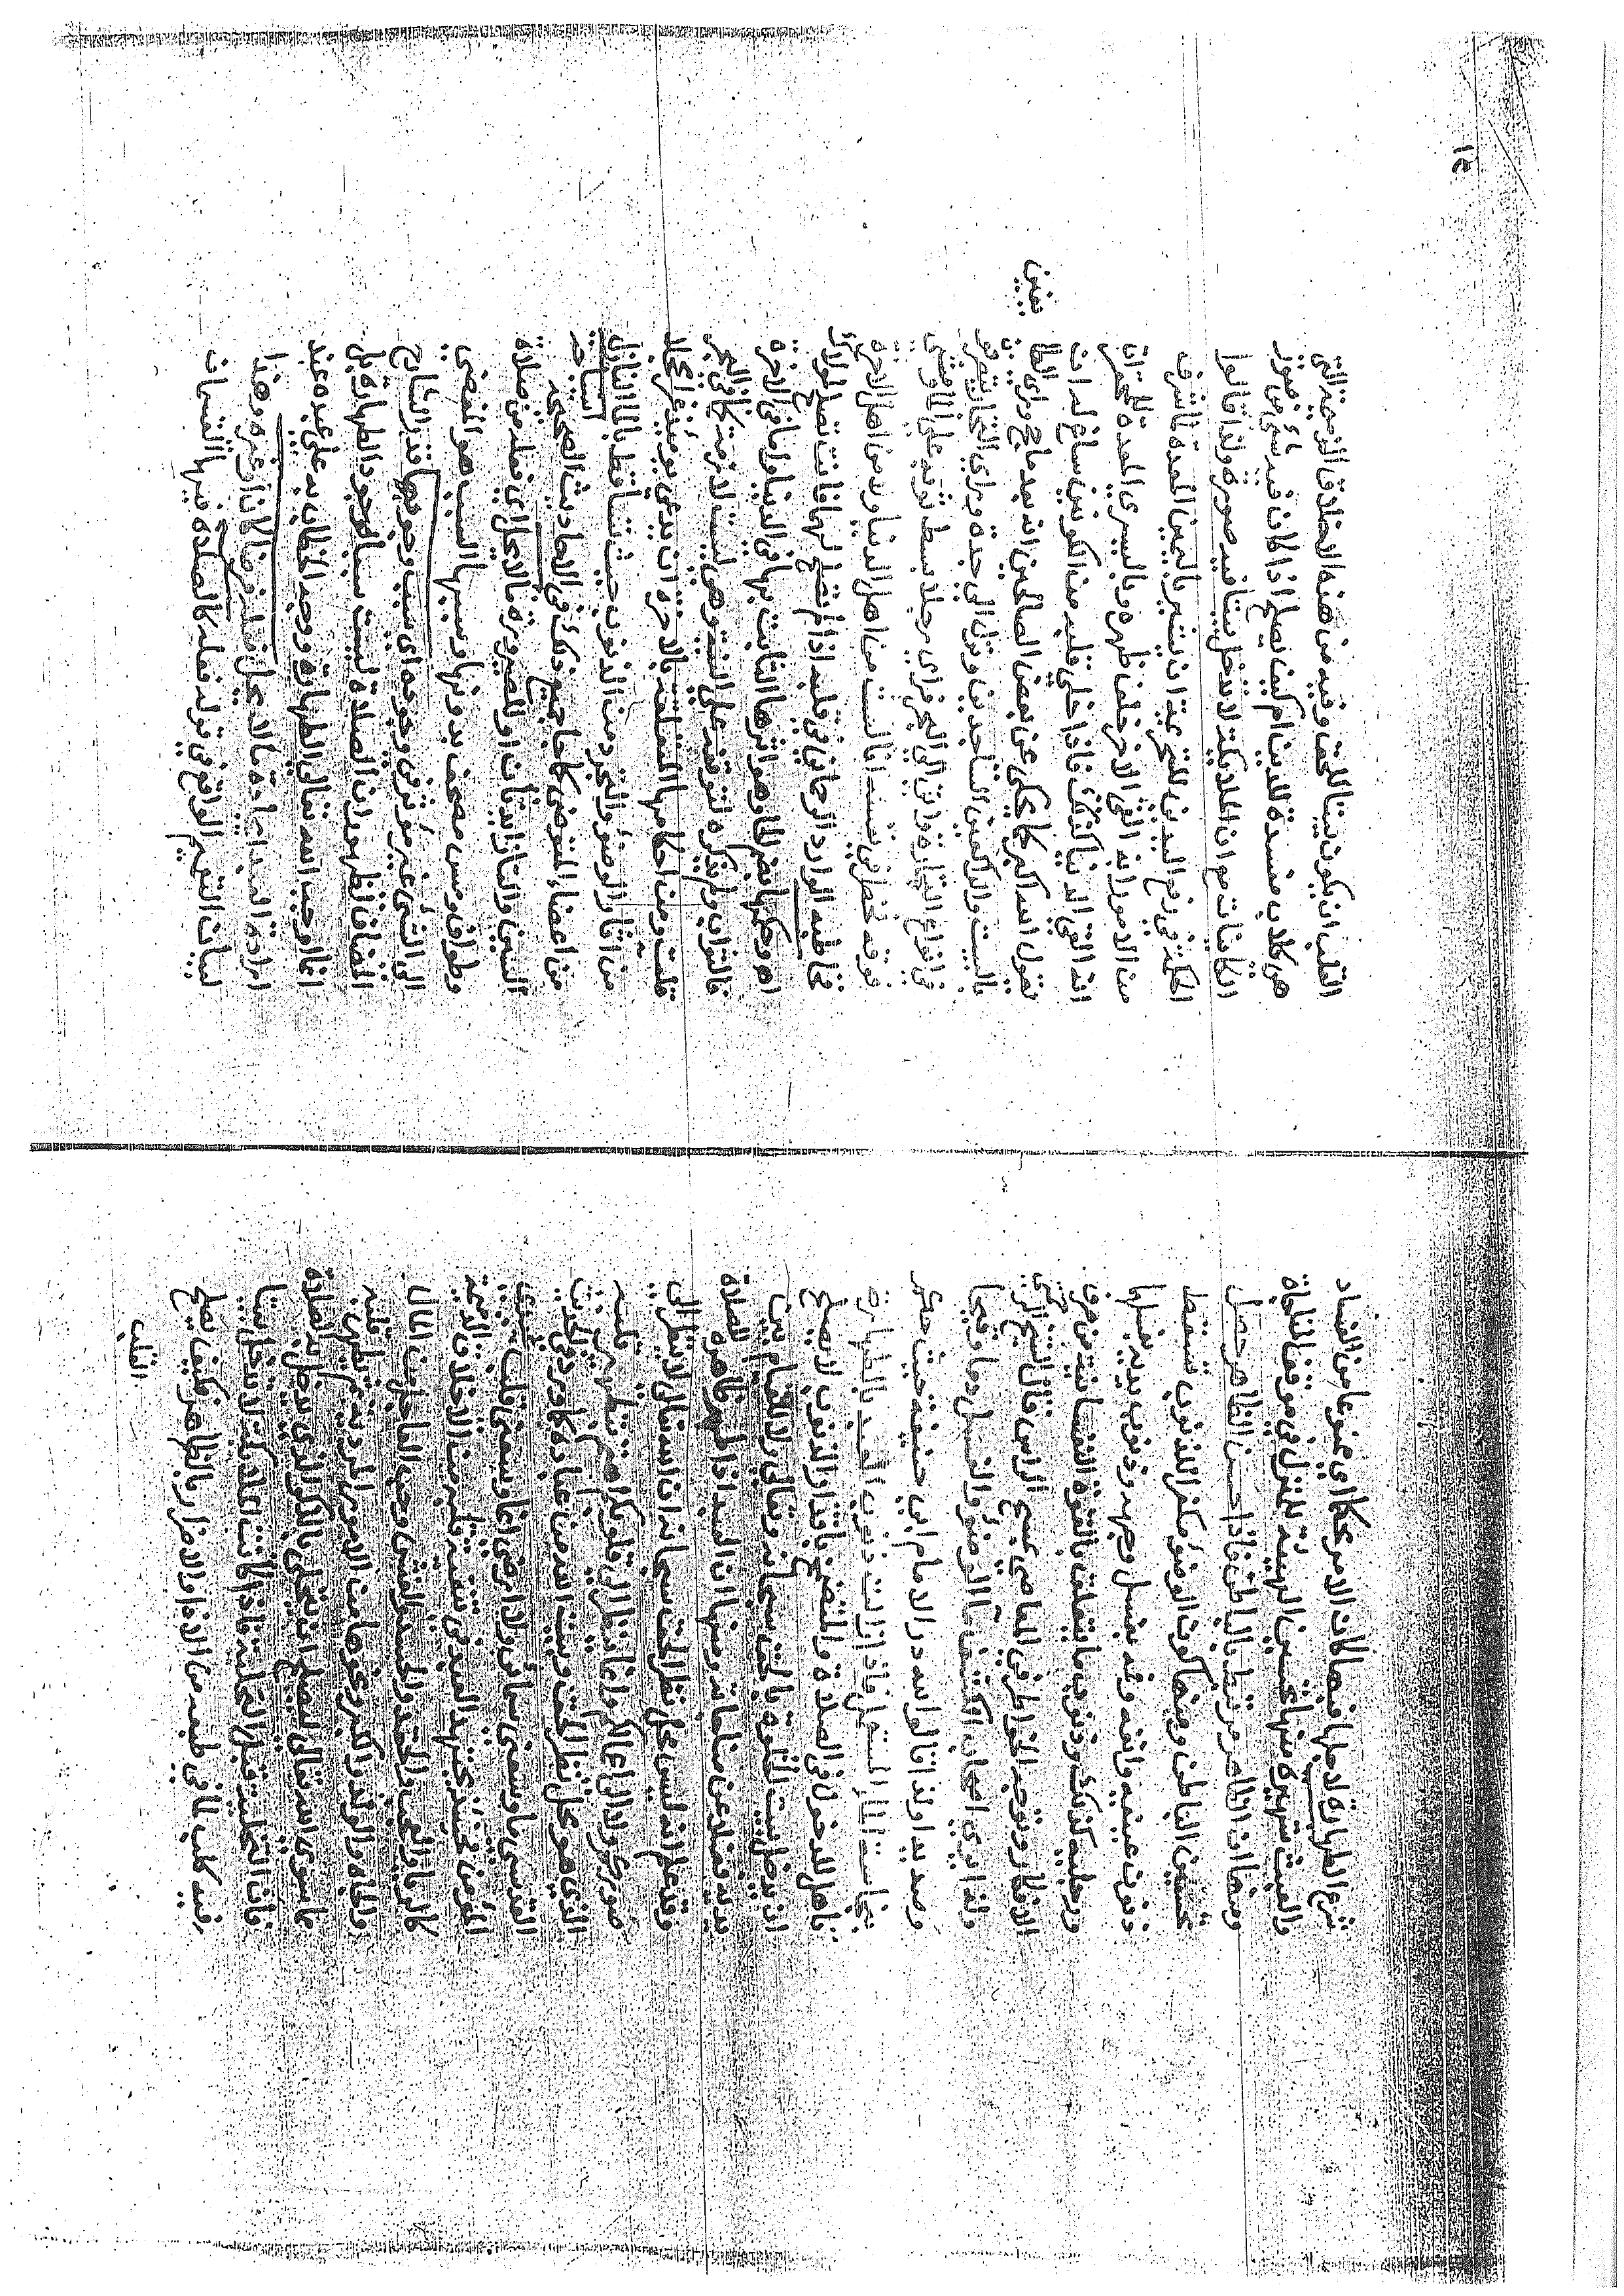 شرع الطهارة لاجلها فبها كان الامر محكما اي ممنوعا من الفساد
والعبث شهيرة منها تحسين الهيئة للمنزل في موقف المناجاة
ومنها ان الظاهر مرتبط بالباطن فاذا حسن الظاهر حصل
تحسين الباطن ومنها كون الوضوء مكفرا للذنوب فتسقط
ذنوب عينيه وانفه وفمه بغسل وجهه وذنوب يديه بغسلها
ورجليه كذلك وذنوب ما يتعلق بالقوة النفسانية من فرق
الافكار وتوجه الخواطر في المعاصي بمسح الراس قال الشيخ
ولذا يرى اصحاب الكشف ماء الوضوء والغسل دما وقيحا
وصديدا ولذا قالوا لله در الامام ابي حنيفة حيث حكم
بنجاسة الماء المستعمل فاذا زالت ذنوب العبد بالطهارة
تاهل للدخول في الصلاة والمتضمخ باقذار الذنوب لا يصلح
ان يدخل بيت الخلوة بالحق سبحانه وتعالى ولا للقيام بين
يديه فضلا عن مناجاته ومنها ان العبد اذا طهر ظاهره للصلاة
وقد علم انه ليس محل نظر الحق سبحانه اذ ان الله تعالى لا ينظر الى
صوركم ولا الى اعمالكم وانما ينظر الى قلوبكم اهتم بتطهير قلبه
الذي هو محل نظر الحق وبيت الله من عباده كما ورد في الحديث
القدسي ما وسعني سمائي ولا ارضي انما وسعني قلب عبدي
المؤمن فحينئذ يجتهد العبد في تنقية قلبه من الاخلاق الذميمة
كالريا والعجب والحقد والحسد والغش وحب العاجل من المال
والجاه والولد والكبر ونحوها من الامور المردية ثم تطهير قلبه
عما سوى الله تعالى ليصلح ان يتحلى بالذكر الذي يدخل به الصلاة
فان التخلية قبل التحلية فاذا كانت الملائكة لا تدخل بيتا
فيه كلب لما في طبعه من الاذا والاضرار بالظاهر فكيف يصلح
القلب
القلب ان يكون بيتا للحق وفيه من هذه الاخلاق الزميمة التي
هي كلاب مفسدة للدين ام كيف يصلح اذا كان فيه شئ من صور
الكاينات مع ان الملايكة لا تدخل بيتا فيه صورة ولذا قالوا
الحكمة في رفع اليدين للتحرمة ان يشير باليمين المعدة لما شرف
من الامور انه القى الاخرة خلف ظهره وباليسرى المعدة للمحقرات
انه القى الدنيا كذلك فاذا خلى قلبه من الكونين ساغ له ان
يقول الله اكبر كما يحكى عن بعض الصالحين انه بعد ما حج وراى الطا يفين
بالبيت والراكعين الساجدين ونزل الى جدة وراى التجار
في انواع التجارة ونزل الى البحر فراى رجلا بسط ثوبه على الماء ومشى
فوقه فخطر في نفسه انا لست من اهل الدنيا ولا من اهل الاخرة
فخاطبه الوارد الرحماني في قلبه اذا لم تصلح لهما فانت تصلح لمولاك
اه وحكمها بضم الحا وهو اثرها الثابت بها في الدنيا واما في الاخرة
فالثواب ولم يذكره لتوقفه على النية وهي ليست لازمة كما في البحر
قلت ومن احكامها المتعلقة بالاخرة ان يدعى يومئذ غرا محجلا
من اثار الوضوء والتجرد من الذنوب حيث تتساقط بالماء النازل
من اعضاء المتوضي كما جمع ذلك في الاحاديث الصحيحة استباحة
السين والتا زايدتان او للصيرورة ما لا يحل اي فعله من صلاة
وطواف ومس مصحف بدونها وسببها السبب هو المفضي
الى الشئ غير مؤثر في وجوده اي سبب وجوبها قدر الشارح
المضاف لظهور ان الصلاة ليست سببا لوجود الطهارة بل
انما اوجب الله تعالى الطهارة ووجه الخطاب به على عبده عند
ارادة العبد اي ارادة ما لا يحل فعله فرضا كان او غيره وهذا
لبيان التعميم الواقع في قوله فعله كالصلاة فيها القسمان